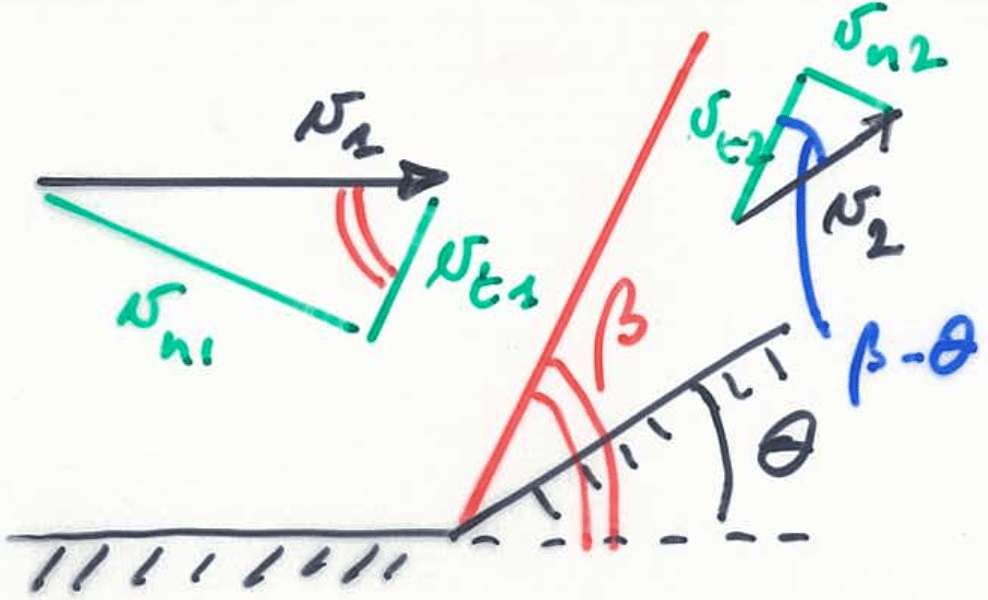 v₁
v_{n1}
v_{t1}
β
v_{n2}
v_{t2}
v₂
β-θ
θ